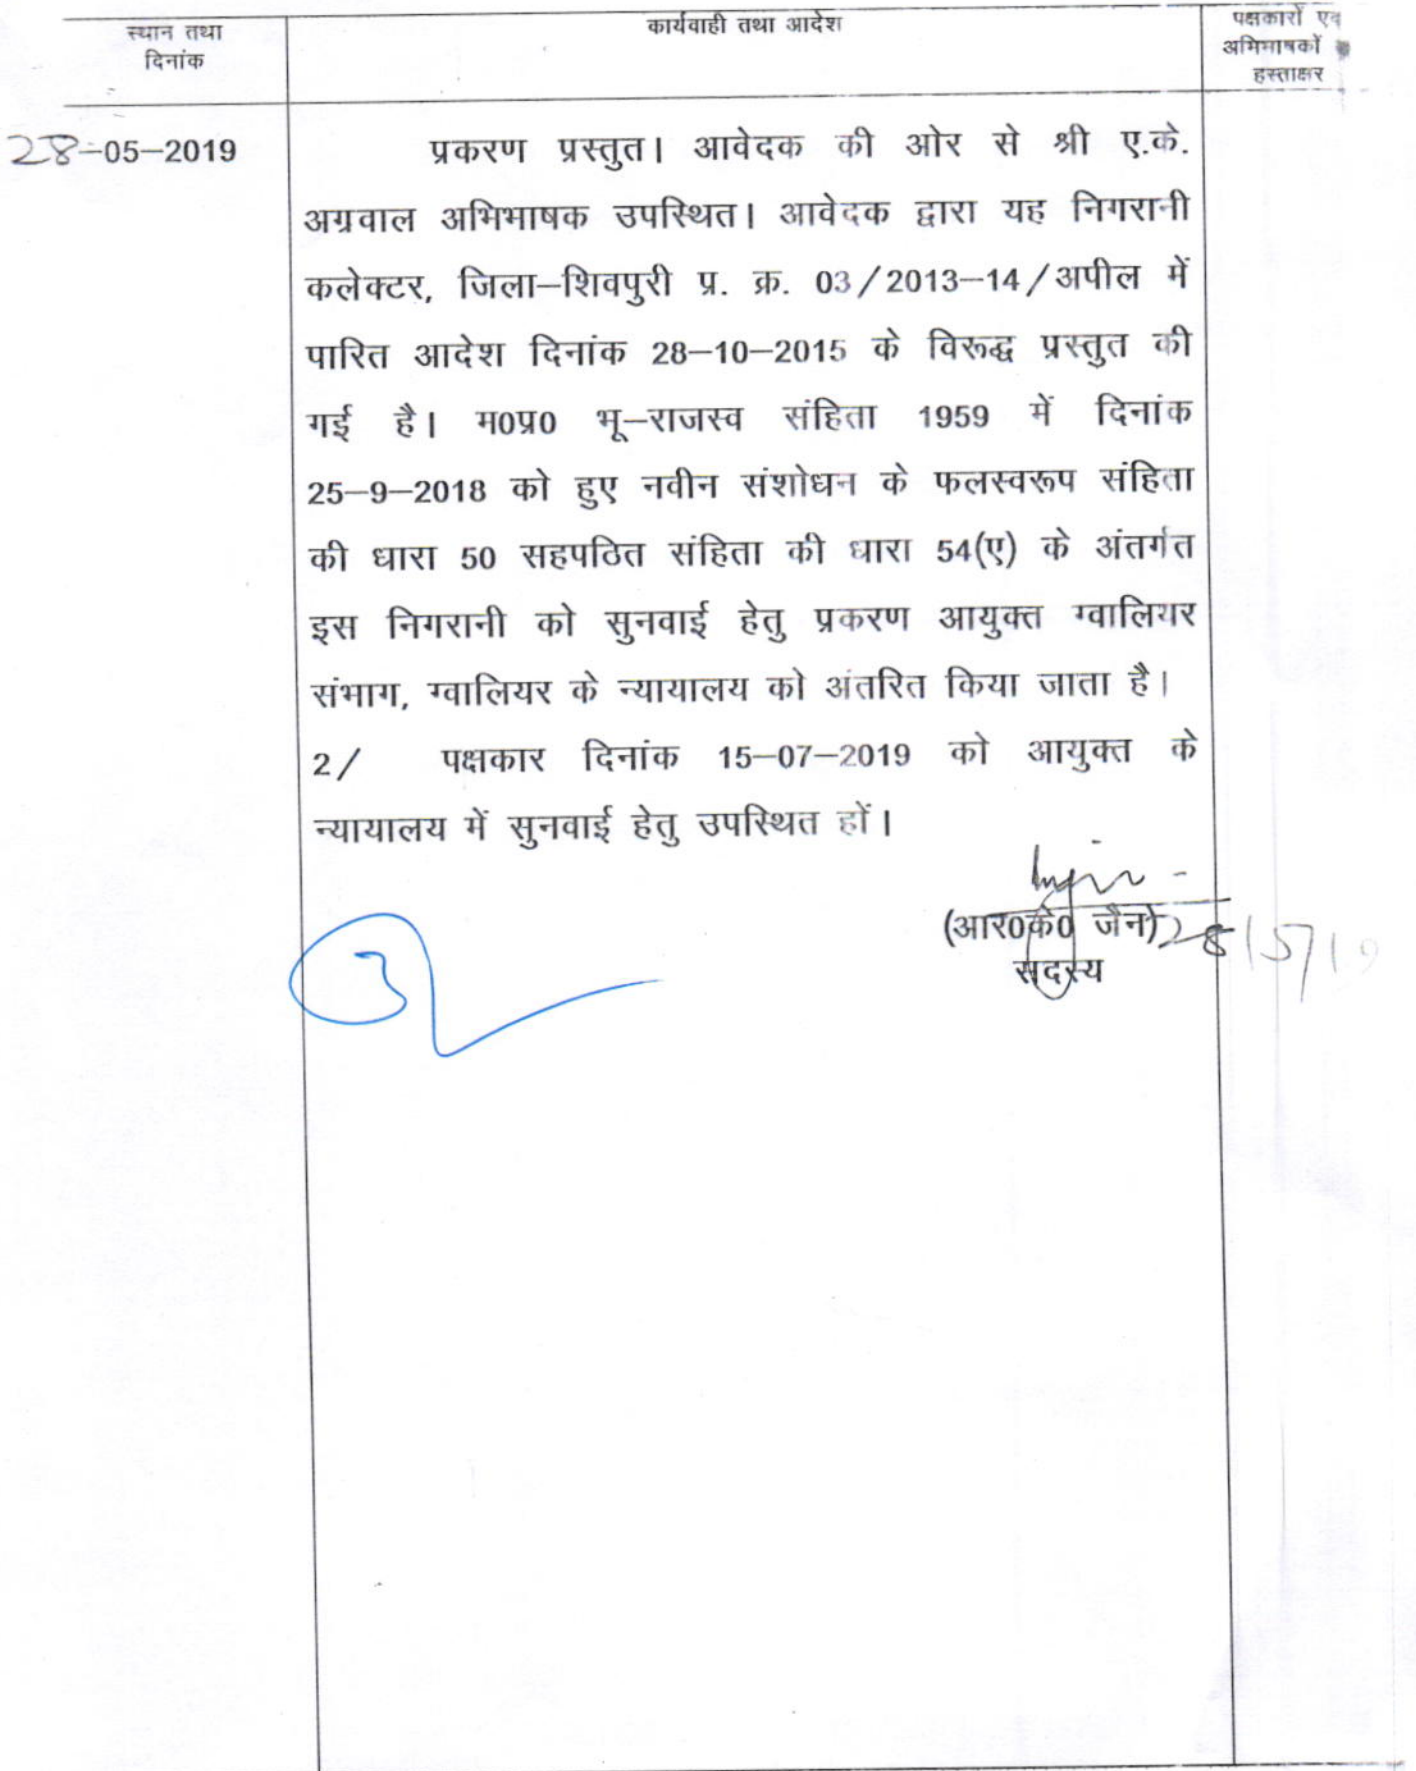 स्थान तथा
दिनांक
कार्यवाही तथा आदेश
पक्षकारों एवं
अभिभाषकों
हस्ताक्षर
28-05-2019
प्रकरण प्रस्तुत। आवेदक की ओर से श्री ए.के.
अग्रवाल अभिभाषक उपस्थित। आवेदक द्वारा यह निगरानी
कलेक्टर, जिला–शिवपुरी प्र. क्र. 03/2013–14/अपील में
पारित आदेश दिनांक 28–10–2015 के विरूद्ध प्रस्तुत की
गई है। म0प्र0 भू–राजस्व संहिता 1959 में दिनांक
25–9–2018 को हुए नवीन संशोधन के फलस्वरूप संहिता
की धारा 50 सहपठित संहिता की धारा 54(ए) के अंतर्गत
इस निगरानी को सुनवाई हेतु प्रकरण आयुक्त ग्वालियर
संभाग, ग्वालियर के न्यायालय को अंतरित किया जाता है।
2/ पक्षकार दिनांक 15–07–2019 को आयुक्त के
न्यायालय में सुनवाई हेतु उपस्थित हों।
(आर0के0 जैन) 28/5/19
सदस्य